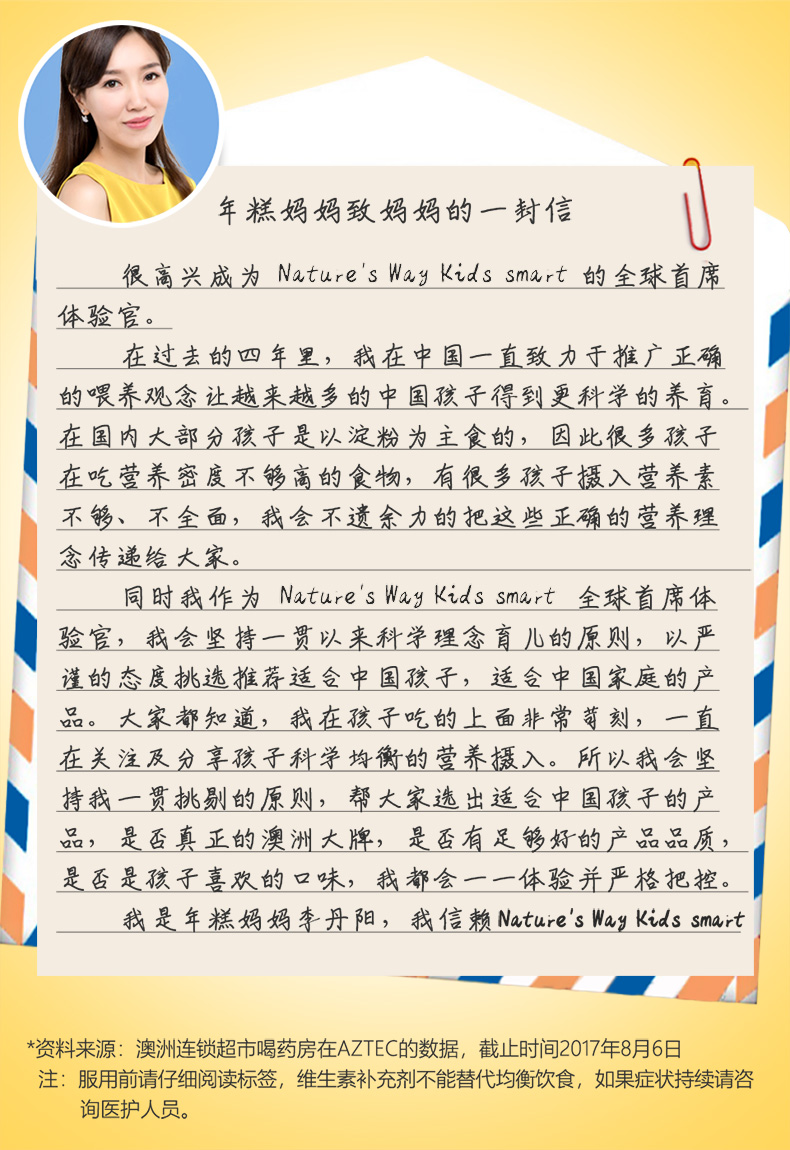 年糕妈妈致妈妈的一封信
很高兴成为 Nature's Way Kids smart 的全球首席
体验官。
在过去的四年里，我在中国一直致力于推广正确
的喂养观念让越来越多的中国孩子得到更科学的养育。
在国内大部分孩子是以淀粉为主食的，因此很多孩子
在吃营养密度不够高的食物，有很多孩子摄入营养素
不够、不全面，我会不遗余力的把这些正确的营养理
念传递给大家。
同时我作为 Nature's Way Kids smart 全球首席体
验官，我会坚持一贯以来科学理念育儿的原则，以严
谨的态度挑选推荐适合中国孩子，适合中国家庭的产
品。大家都知道，我在孩子吃的上面非常苛刻，一直
在关注及分享孩子科学均衡的营养摄入。所以我会坚
持我一贯挑剔的原则，帮大家选出适合中国孩子的产
品，是否真正的澳洲大牌，是否有足够好的产品品质，
是否是孩子喜欢的口味，我都会一一体验并严格把控。
我是年糕妈妈李丹阳，我信赖Nature's Way Kids smart
*资料来源：澳洲连锁超市喝药房在AZTEC的数据，截止时间2017年8月6日
注：服用前请仔细阅读标签，维生素补充剂不能替代均衡饮食，如果症状持续请咨
询医护人员。